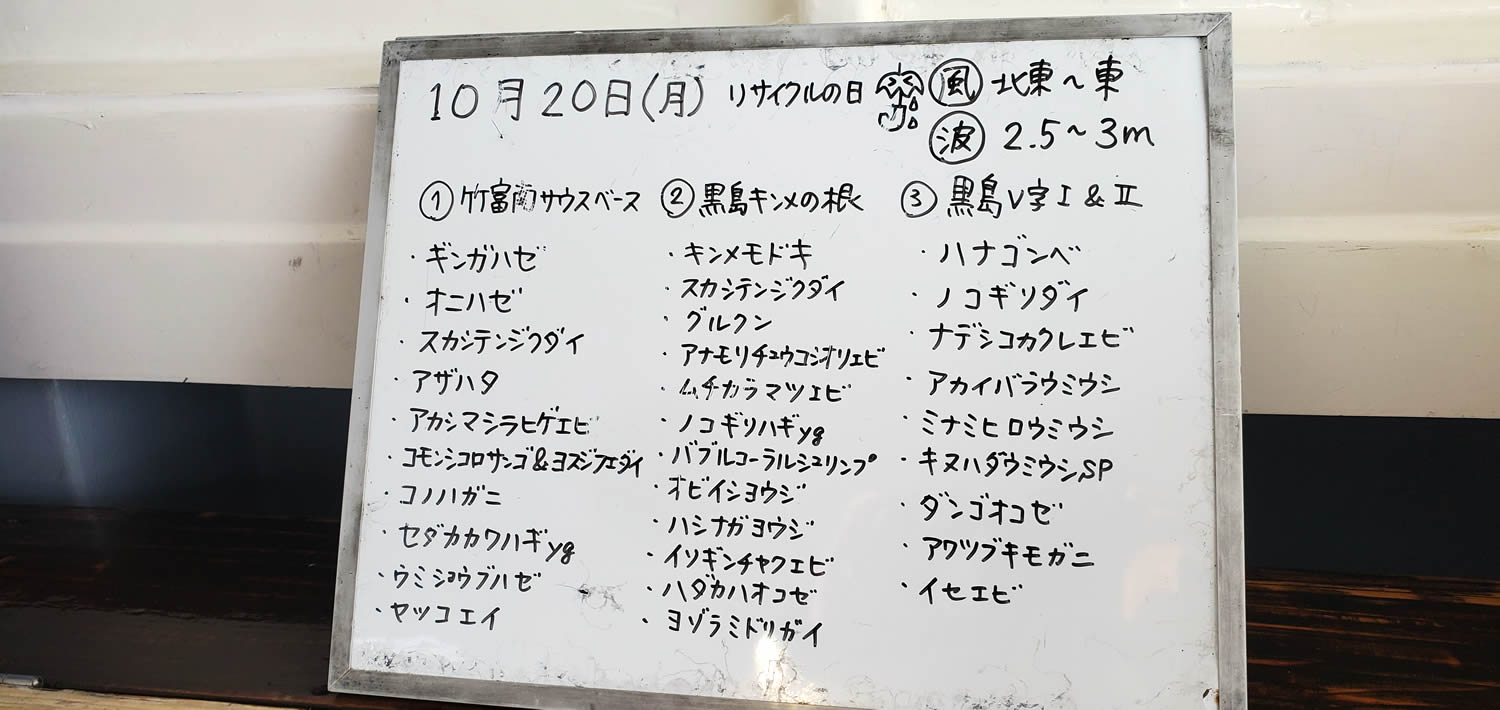 10月20日(月) リサイクルの日 風 北東～東
波 2.5～3m
① 竹富南サウスベース
・ギンガハゼ
・オニハゼ
・スカシテンジクダイ
・アザハタ
・アカシマシラヒゲエビ
・コモンシコロサンゴ&ヨスジフエダイ
・コノハガニ
・セダカカワハギyg
・ウミショウブハゼ
・ヤッコエイ
② 黒島キンメの根
・キンメモドキ
・スカシテンジクダイ
・グルクン
・アナモリチュウコシオリエビ
・ムチカラマツエビ
・ノコギリハギyg
・バブルコーラルシュリンプ
・オビイシヨウジ
・ハシナガヨウジ
・イソギンチャクエビ
・ハダカハオコゼ
・ヨゾラミドリガイ
③ 黒島V字Ⅰ&Ⅱ
・ハナゴンベ
・ノコギリダイ
・ナデシコカクレエビ
・アカイバラウミウシ
・ミナミヒロウミウシ
・キヌハダウミウシSP
・ダンゴオコゼ
・アワツブキモガニ
・イセエビ